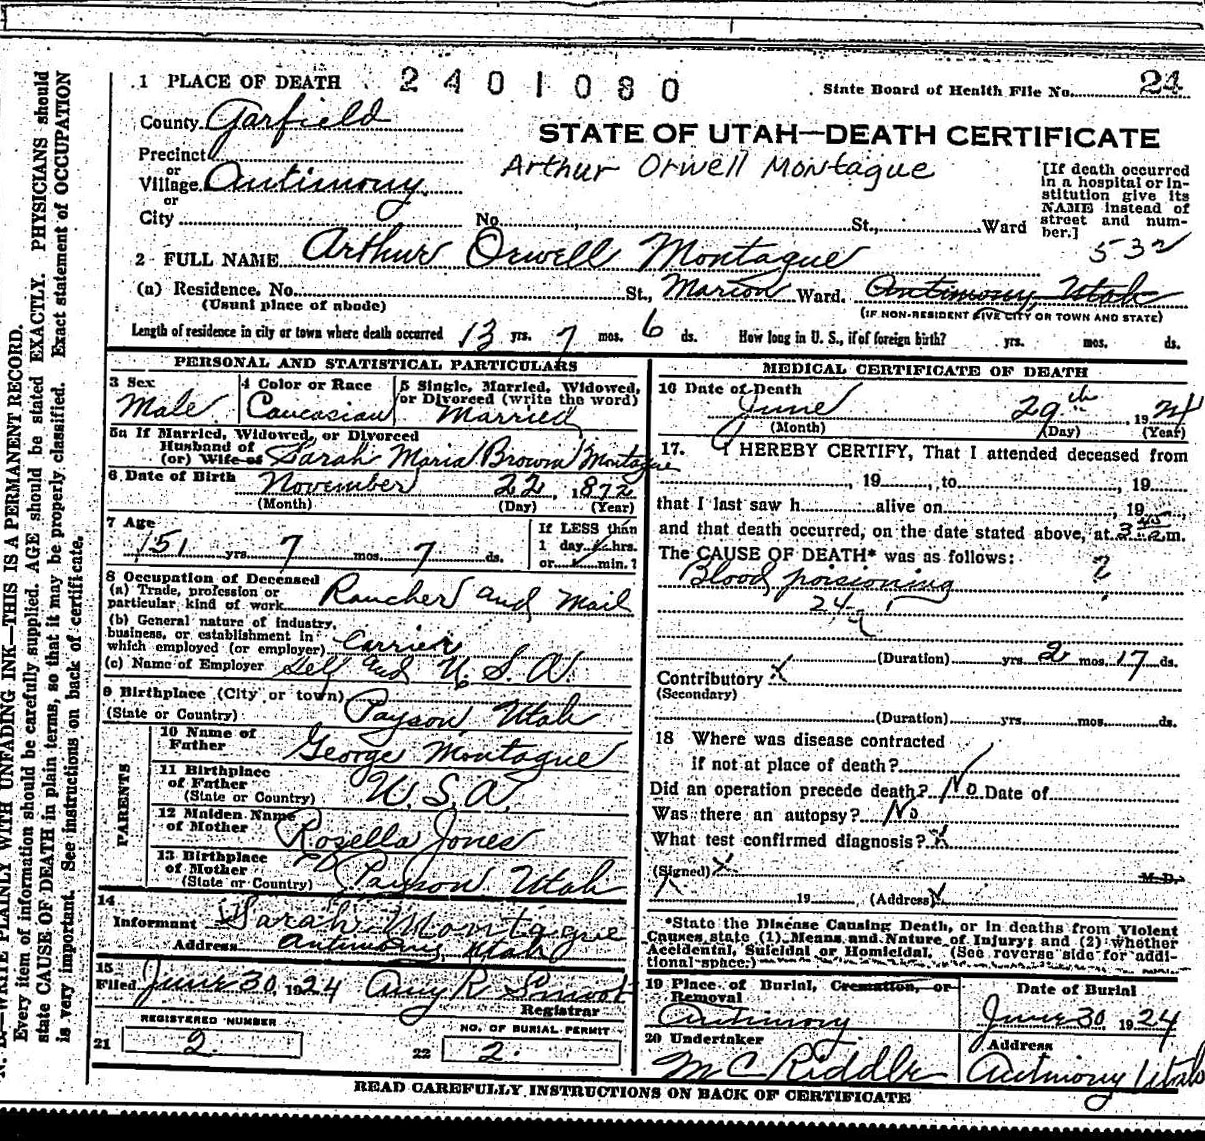 1 PLACE OF DEATH 2401080 State Board of Health File No. 24
County Garfield
STATE OF UTAH—DEATH CERTIFICATE
Precinct
or
Village Antimony
or
City No. St., Ward
Arthur Orwell Montague
[If death occurred
in a hospital or in-
stitution give its
NAME instead of
street and num-
ber.]
532
2 FULL NAME Arthur Orwell Montague
(a) Residence. No. St., Marion Ward. Antimony, Utah
(Usual place of abode) (IF NON-RESIDENT GIVE CITY OR TOWN AND STATE)
Length of residence in city or town where death occurred 13 yrs. 7 mos. 6 ds. How long in U. S., if of foreign birth? yrs. mos. ds.
PERSONAL AND STATISTICAL PARTICULARS
3 Sex
Male
4 Color or Race
Caucasian
5 Single, Married, Widowed,
or Divorced (write the word)
Married
5a If Married, Widowed, or Divorced
Husband of
(or) Wife of Sarah Maria Brown Montague
6 Date of Birth
November 22, 1872
(Month) (Day) (Year)
7 Age
51 yrs. 7 mos. 7 ds.
If LESS than
1 day, hrs.
or min.?
8 Occupation of Deceased
(a) Trade, profession or
particular kind of work Rancher and Mail
(b) General nature of industry,
business, or establishment in
which employed (or employer) Carrier
(c) Name of Employer Self and U. S. A.
9 Birthplace (City or town)
(State or Country) Payson, Utah
PARENTS
10 Name of
Father George Montague
11 Birthplace
of Father
(State or Country) U. S. A.
12 Maiden Name
of Mother Rozella Jones
13 Birthplace
of Mother
(State or Country) Payson Utah
14
Informant Sarah Montague
Address Antimony, Utah
15
Filed June 30 1924 Amy R Smoot
Registrar
REGISTERED NUMBER
21 2.
NO. OF BURIAL PERMIT
22 2.
MEDICAL CERTIFICATE OF DEATH
16 Date of Death
June 29th 1924
(Month) (Day) (Year)
17. I HEREBY CERTIFY, That I attended deceased from
, 19 , to , 19
that I last saw h alive on , 19 ,
and that death occurred, on the date stated above, at 3 45 a m.
The CAUSE OF DEATH* was as follows:
Blood poisioning ?
24
(Duration) yrs. 2 mos. 17 ds.
Contributory x
(Secondary)
(Duration) yrs. mos. ds.
18 Where was disease contracted
if not at place of death?
Did an operation precede death? No Date of
Was there an autopsy? No
What test confirmed diagnosis? x
(Signed) x M.D.
19 (Address) x
*State the Disease Causing Death, or in deaths from Violent
Causes state (1) Means and Nature of Injury; and (2) whether
Accidental, Suicidal or Homicidal. (See reverse side for addi-
tional space.)
19 Place of Burial, Cremation, or
Removal
Antimony
Date of Burial
June 30 1924
20 Undertaker
M C Riddle
Address
Antimony Utah
READ CAREFULLY INSTRUCTIONS ON BACK OF CERTIFICATE
WRITE PLAINLY WITH UNFADING INK—THIS IS A PERMANENT RECORD.
Every item of information should be carefully supplied. AGE should be stated EXACTLY. PHYSICIANS should
state CAUSE OF DEATH in plain terms, so that it may be properly classified. Exact statement of OCCUPATION
is very important. See instructions on back of certificate.